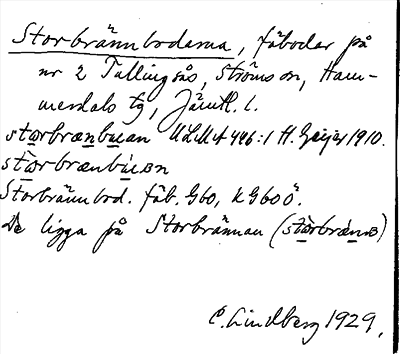 Storbrännbodarna, fäbodar på
nr 2 Tullingsås, Ströms sn, Ham-
merdals tg, Jämtl. l.
storbrænbuan ULMA 446:1 H. Geijer 1910.
storbrænbúɐn
Storbrännbod. fäb. G60, KG60Ö.
De ligga på Storbrännan (stòrbrǽnɐ)
C. Lindberg 1929.